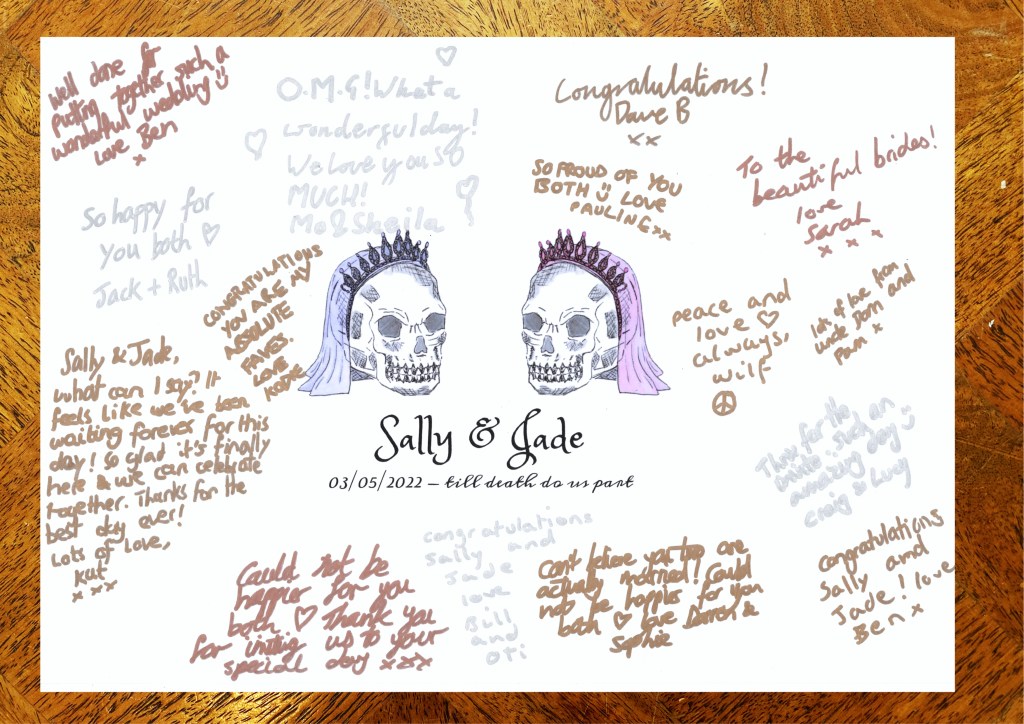 Well done for
putting together such a
wonderful wedding
love Ben
x
O.M.G! What a
wonderful day!
We love you SO
MUCH!
Mo & Sheila
Congratulations!
Dave B
xx
SO PROUD OF YOU
BOTH LOVE
PAULINE xx
To the
beautiful brides!
love
Sarah
x x x
So happy for
you both ♡
Jack + Ruth
CONGRATULATIONS
YOU ARE MY
ABSOLUTE
FAVES.
LOVE
peace and
love ♡
always,
wilf
lots of love from
uncle Dom and
Pam x
Sally & Jade,
what can I say? It
feels like we've been
waiting forever for this
day! So glad it's finally
here & we can celebrate
together. Thanks for the
best day ever!
Lots of love,
Kat
x x x
Sally & Jade
03/05/2022 – till death do us part
for the
invite, such an
amazing day
craig & Lucy
Could not be
happier for you
both ♡ Thank you
for inviting us to your
special day xxx
congratulations
Sally and
Jade
love
Bill
and
Oti
Can't believe you two are
actually married! Could
not be happier for you
both ♡ love Darron &
Sophie
Congratulations
Sally and
Jade! love
Ben x